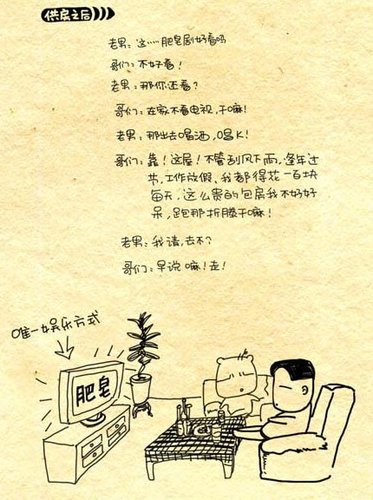 供房之后
老男：这……肥皂剧好看吗
哥们：不好看！
老男：那你还看？
哥们：在家不看电视，干嘛！
老男：那出去喝酒，唱K！
哥们：靠！这屋！不管刮风下雨，逢年过
节，工作放假，我都得花一百块
每天，这么贵的包房我不好好
呆，跑那折腾干嘛！
老男：我请，去不？
哥们：早说嘛！走！
唯一娱乐方式
肥皂